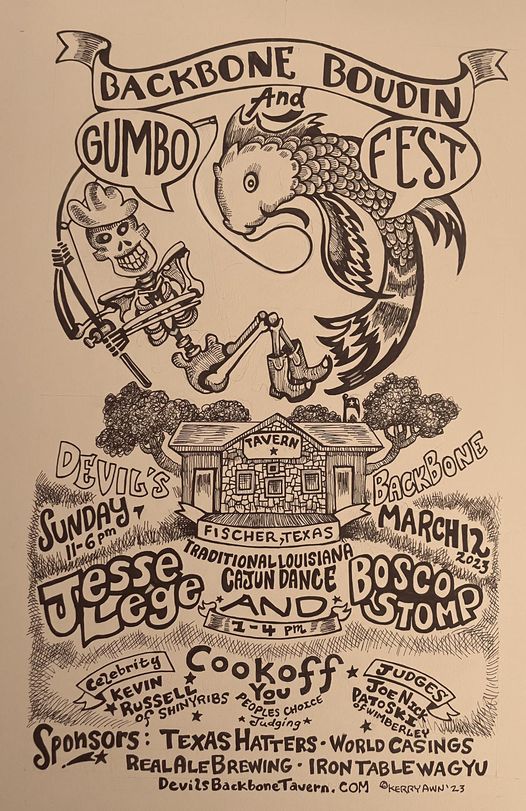 BACKBONE BOUDIN
And
GUMBO
FEST
TAVERN
DEVIL'S
BACKBONE
SUNDAY
11-6 pm
FISCHER, TEXAS
MARCH 12
2023
Jesse
Lege
TRADITIONAL LOUISIANA
CAJUN DANCE
AND
1-4 PM
BOSCO
STOMP
Celebrity
KEVIN
RUSSELL
OF SHINYRIBS
Cookoff
YOU
PEOPLES CHOICE
Judging
JUDGES
JOE NICK
PATOSKI
OF WIMBERLEY
Sponsors: TEXAS HATTERS · WORLD CASINGS
REAL ALE BREWING · IRON TABLE WAGYU
DevilsBackboneTavern.COM ©KERRY AWN '23